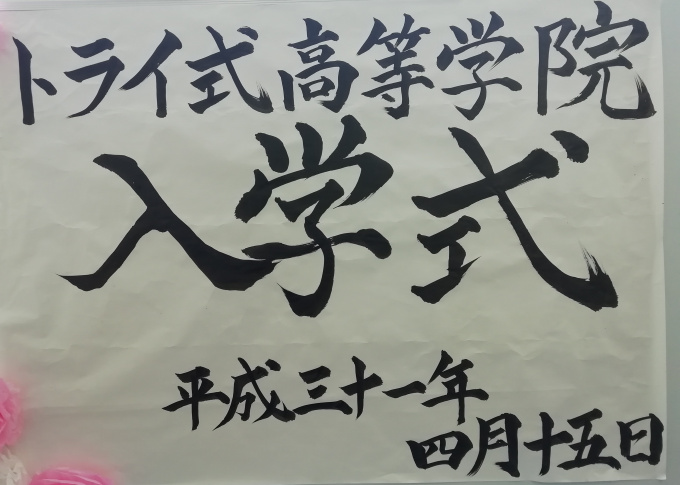 トライ式高等学院
入学式
平成三十一年
四月十五日